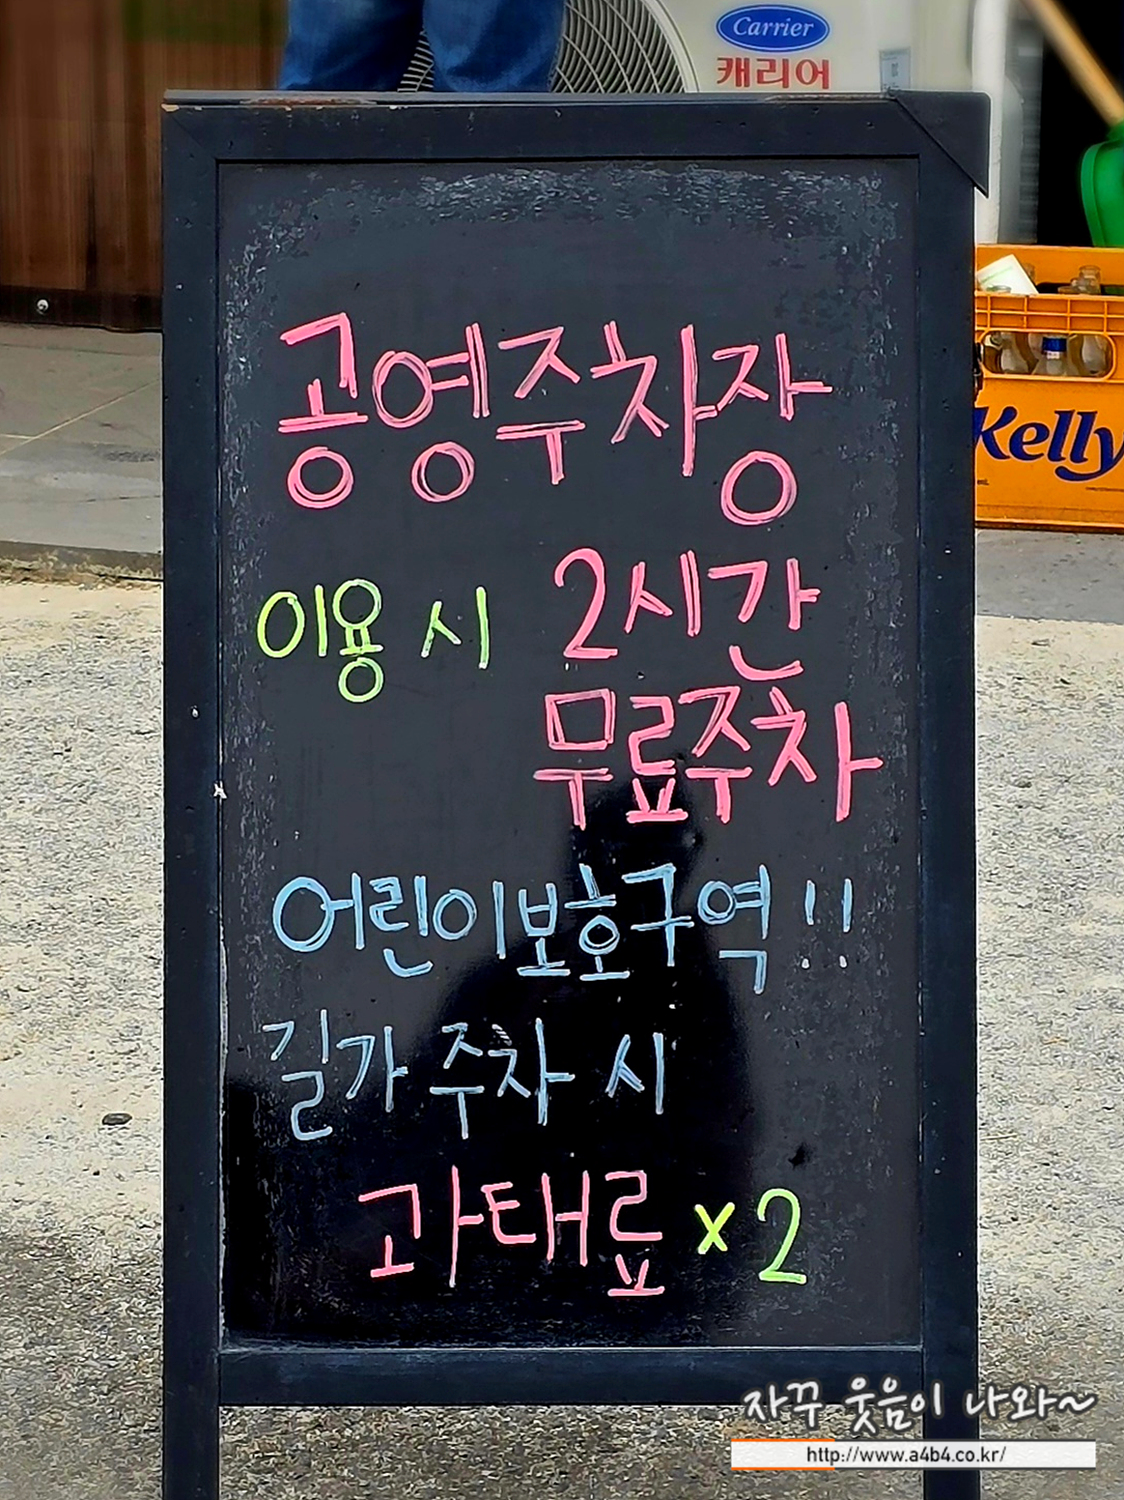 Carrier
캐리어
Kelly
공영주차장
이용 시 2시간
무료주차
어린이보호구역!!
길가 주차 시
과태료 x2
자꾸 웃음이 나와~
http://www.a4b4.co.kr/